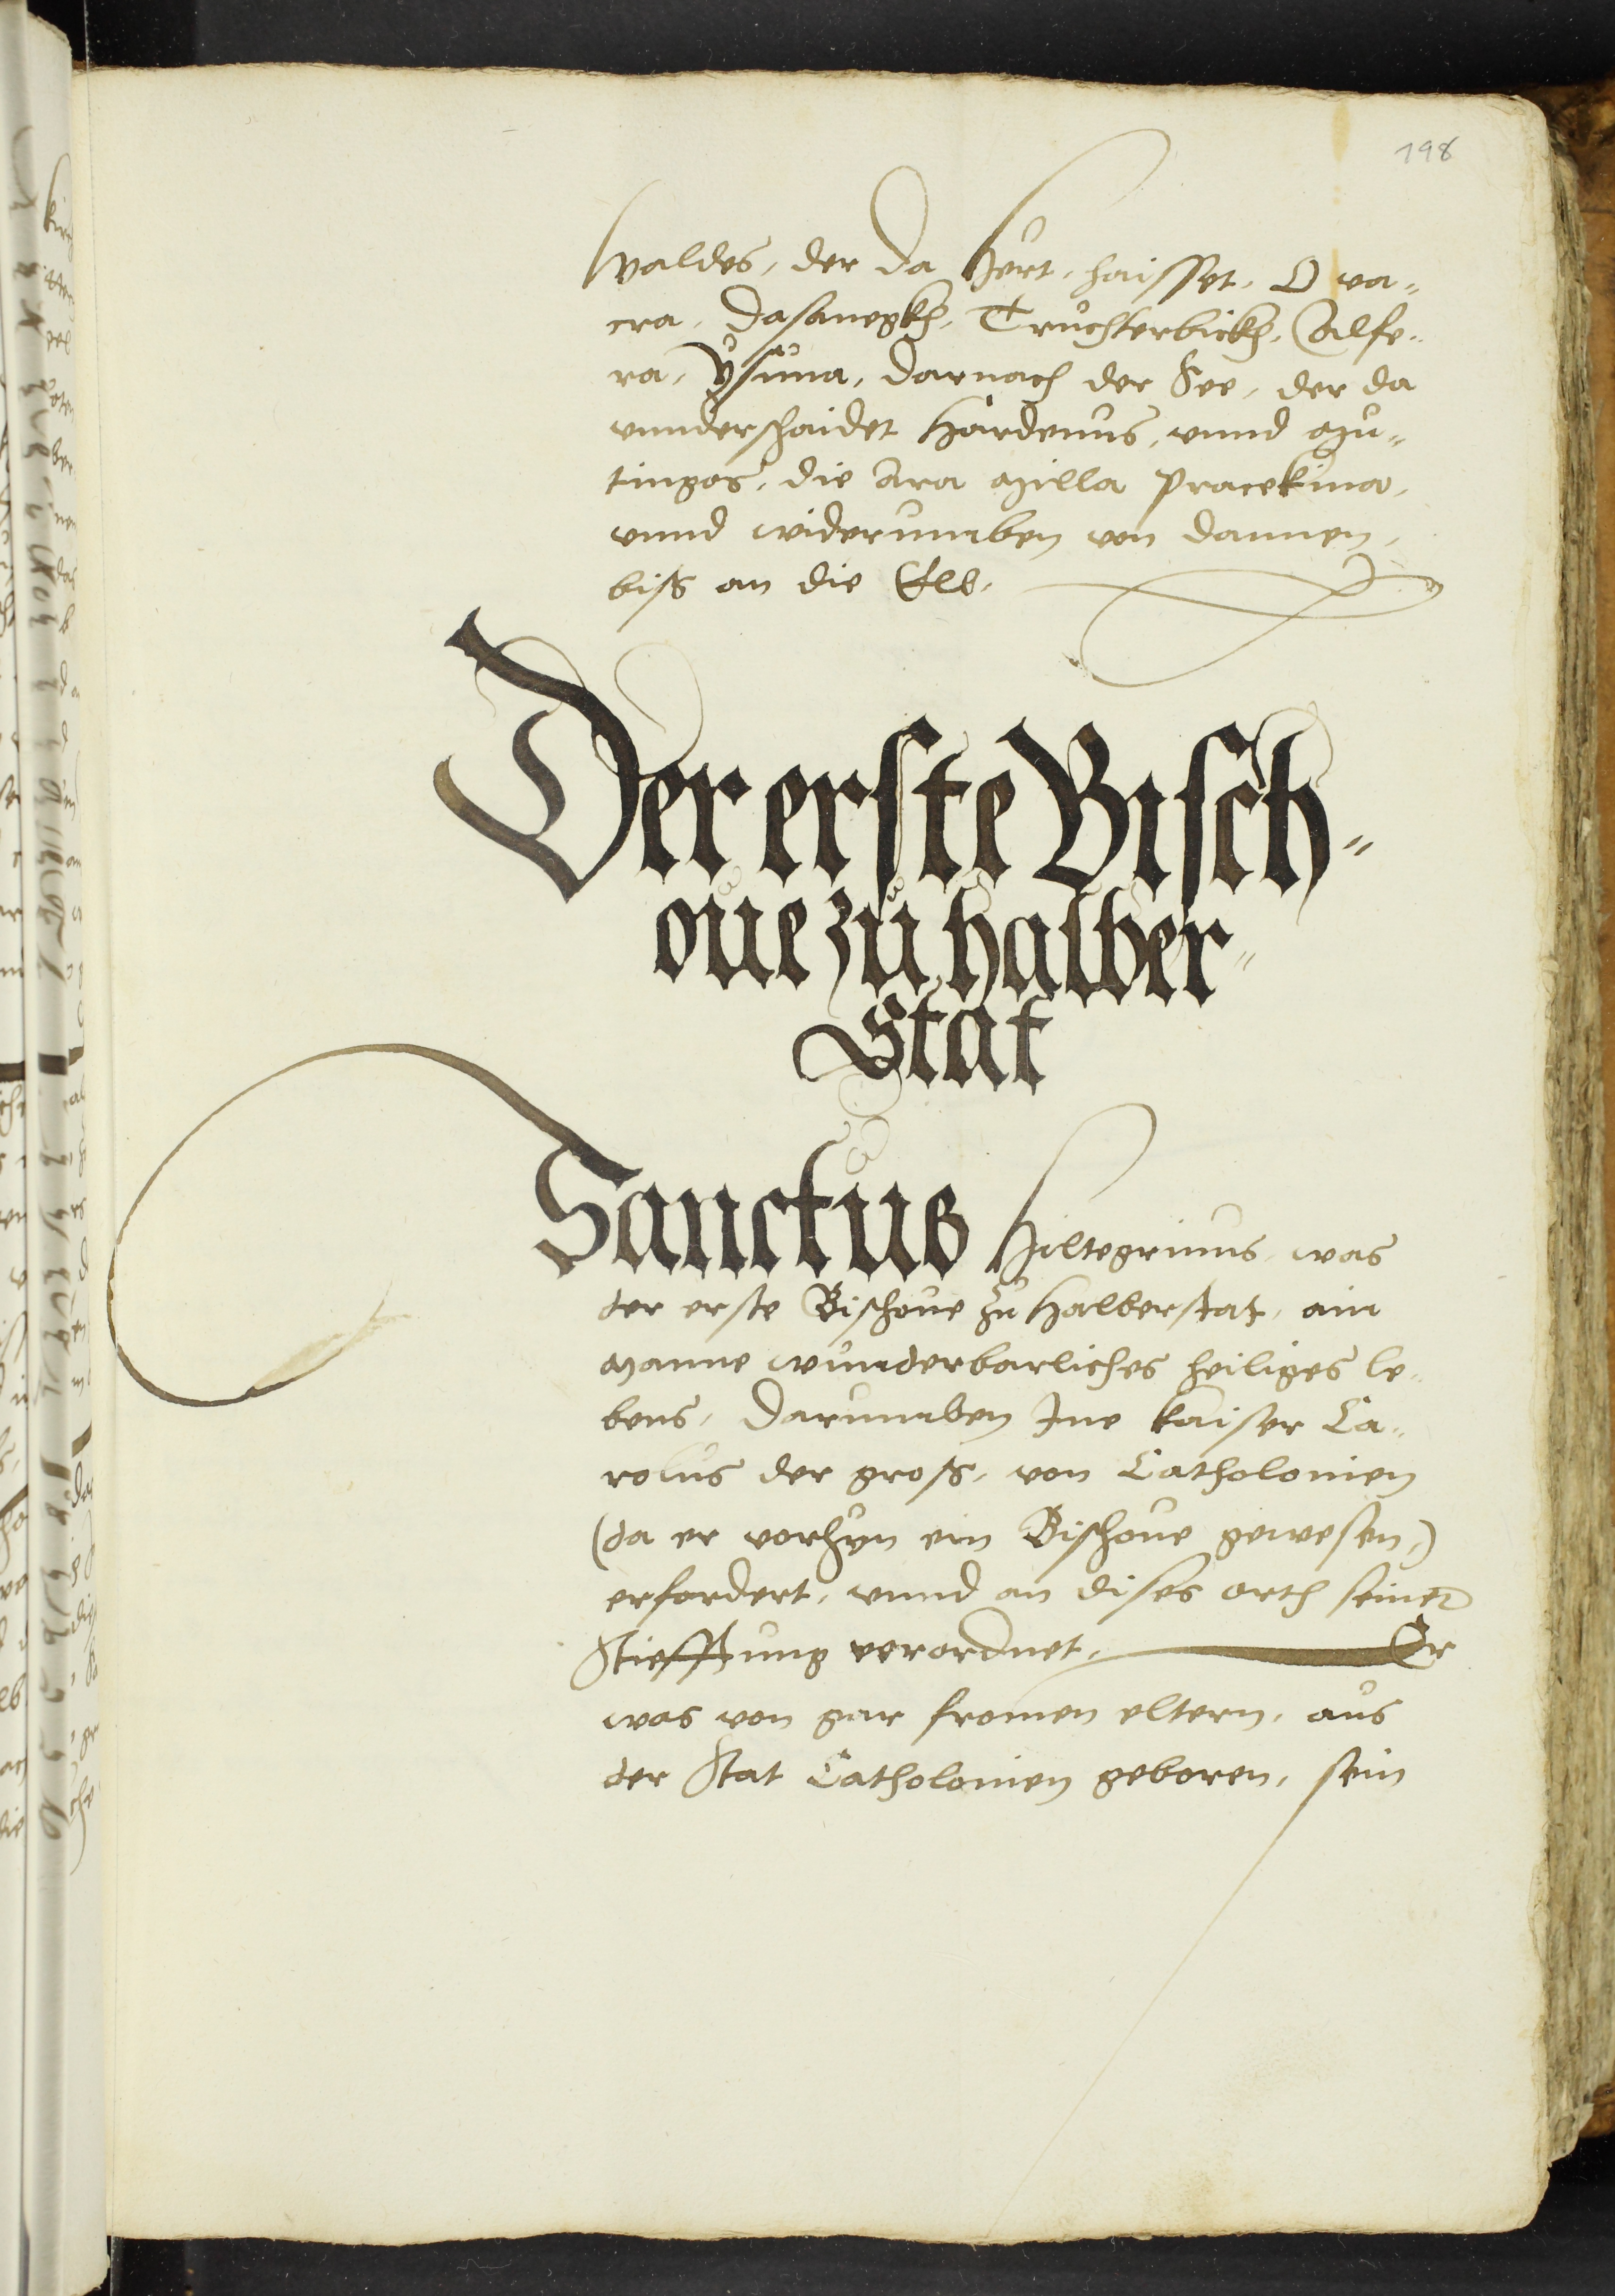 198
Waldes, der da Hert, haisset, O va„
cra, Dasanegkh, Truchterbickh, Calfe„
ra, Ysuna, Darnach der See, der da
vnnderschaidet Hardenus, vnnd Mu„
tingos, die Ara Milla Pracekina,
vnnd widerumben von dannen,
biß an die Elb.
Der erste Bisch„
oue zu halber„
Stat
Sanctus Hiltegrinus, was
der erste Bischoue zu Halberstat, ain
Manne wunderbarliches heiliges le„
bens, Darumben Jne kaiser Ca„
rolus der groß, von Catholonien
(da er vorhyn ein Bischoue gewesen,)
erfordert, vnnd an dises orth seiner
Stiefftung verordnet, Er
was von gar fromen eltern, aus
der Stat Catholonien geboren, sein